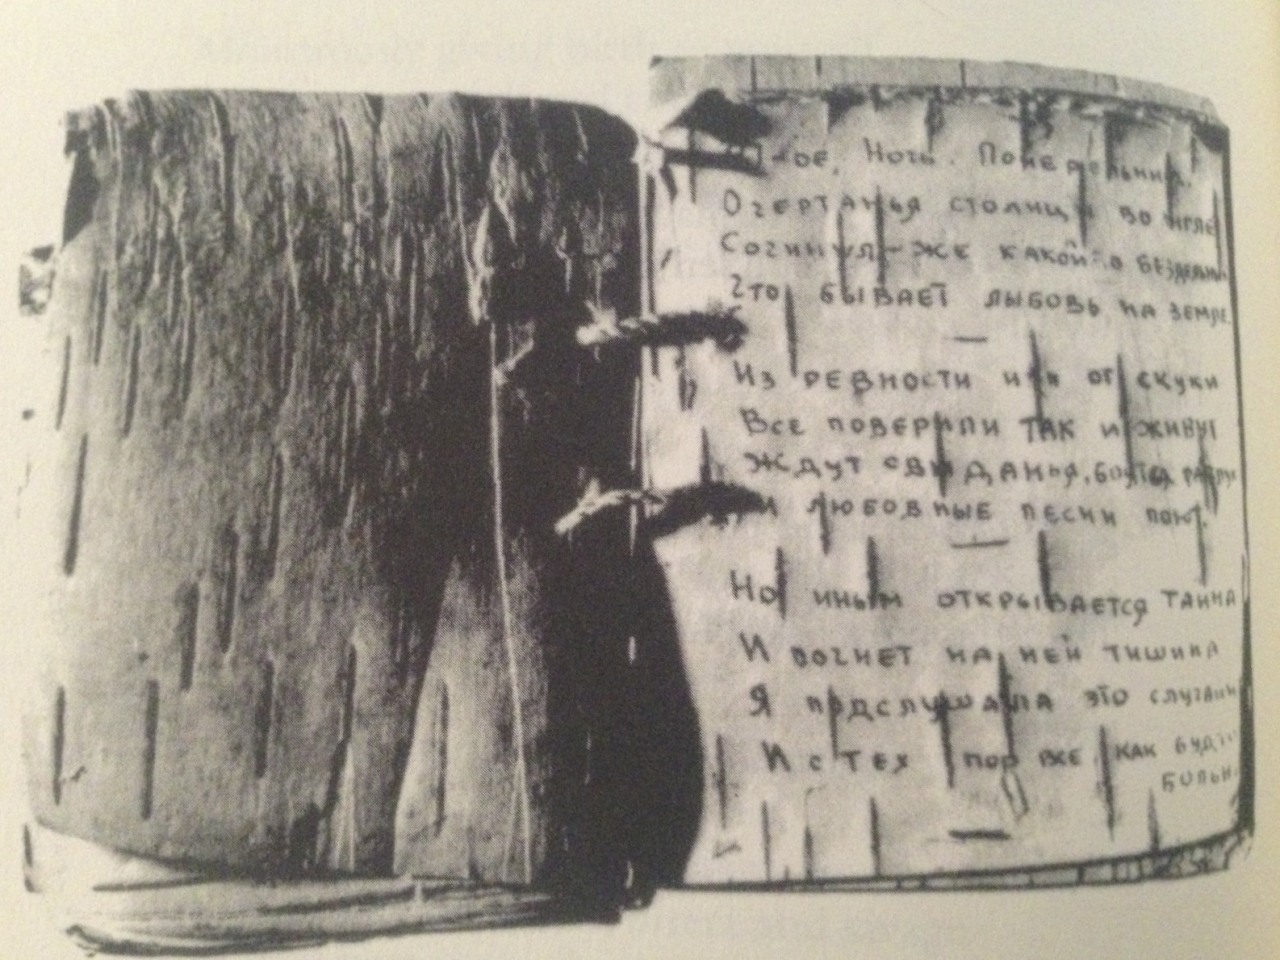 21-ое. Ночь. Понедельник.
Очертанья столицы во мгле
Сочинил-же какой-то бездельн
Что бывает любовь на земле
Из ревности или от скуки
Все поверили так и живут
Ждут свиданья, боятся разлу
И любовные песни поют.
Но иным открывается тайна
И почиет на ней тишина
Я подслушала это случайн
И с тех пор все как будто
больн